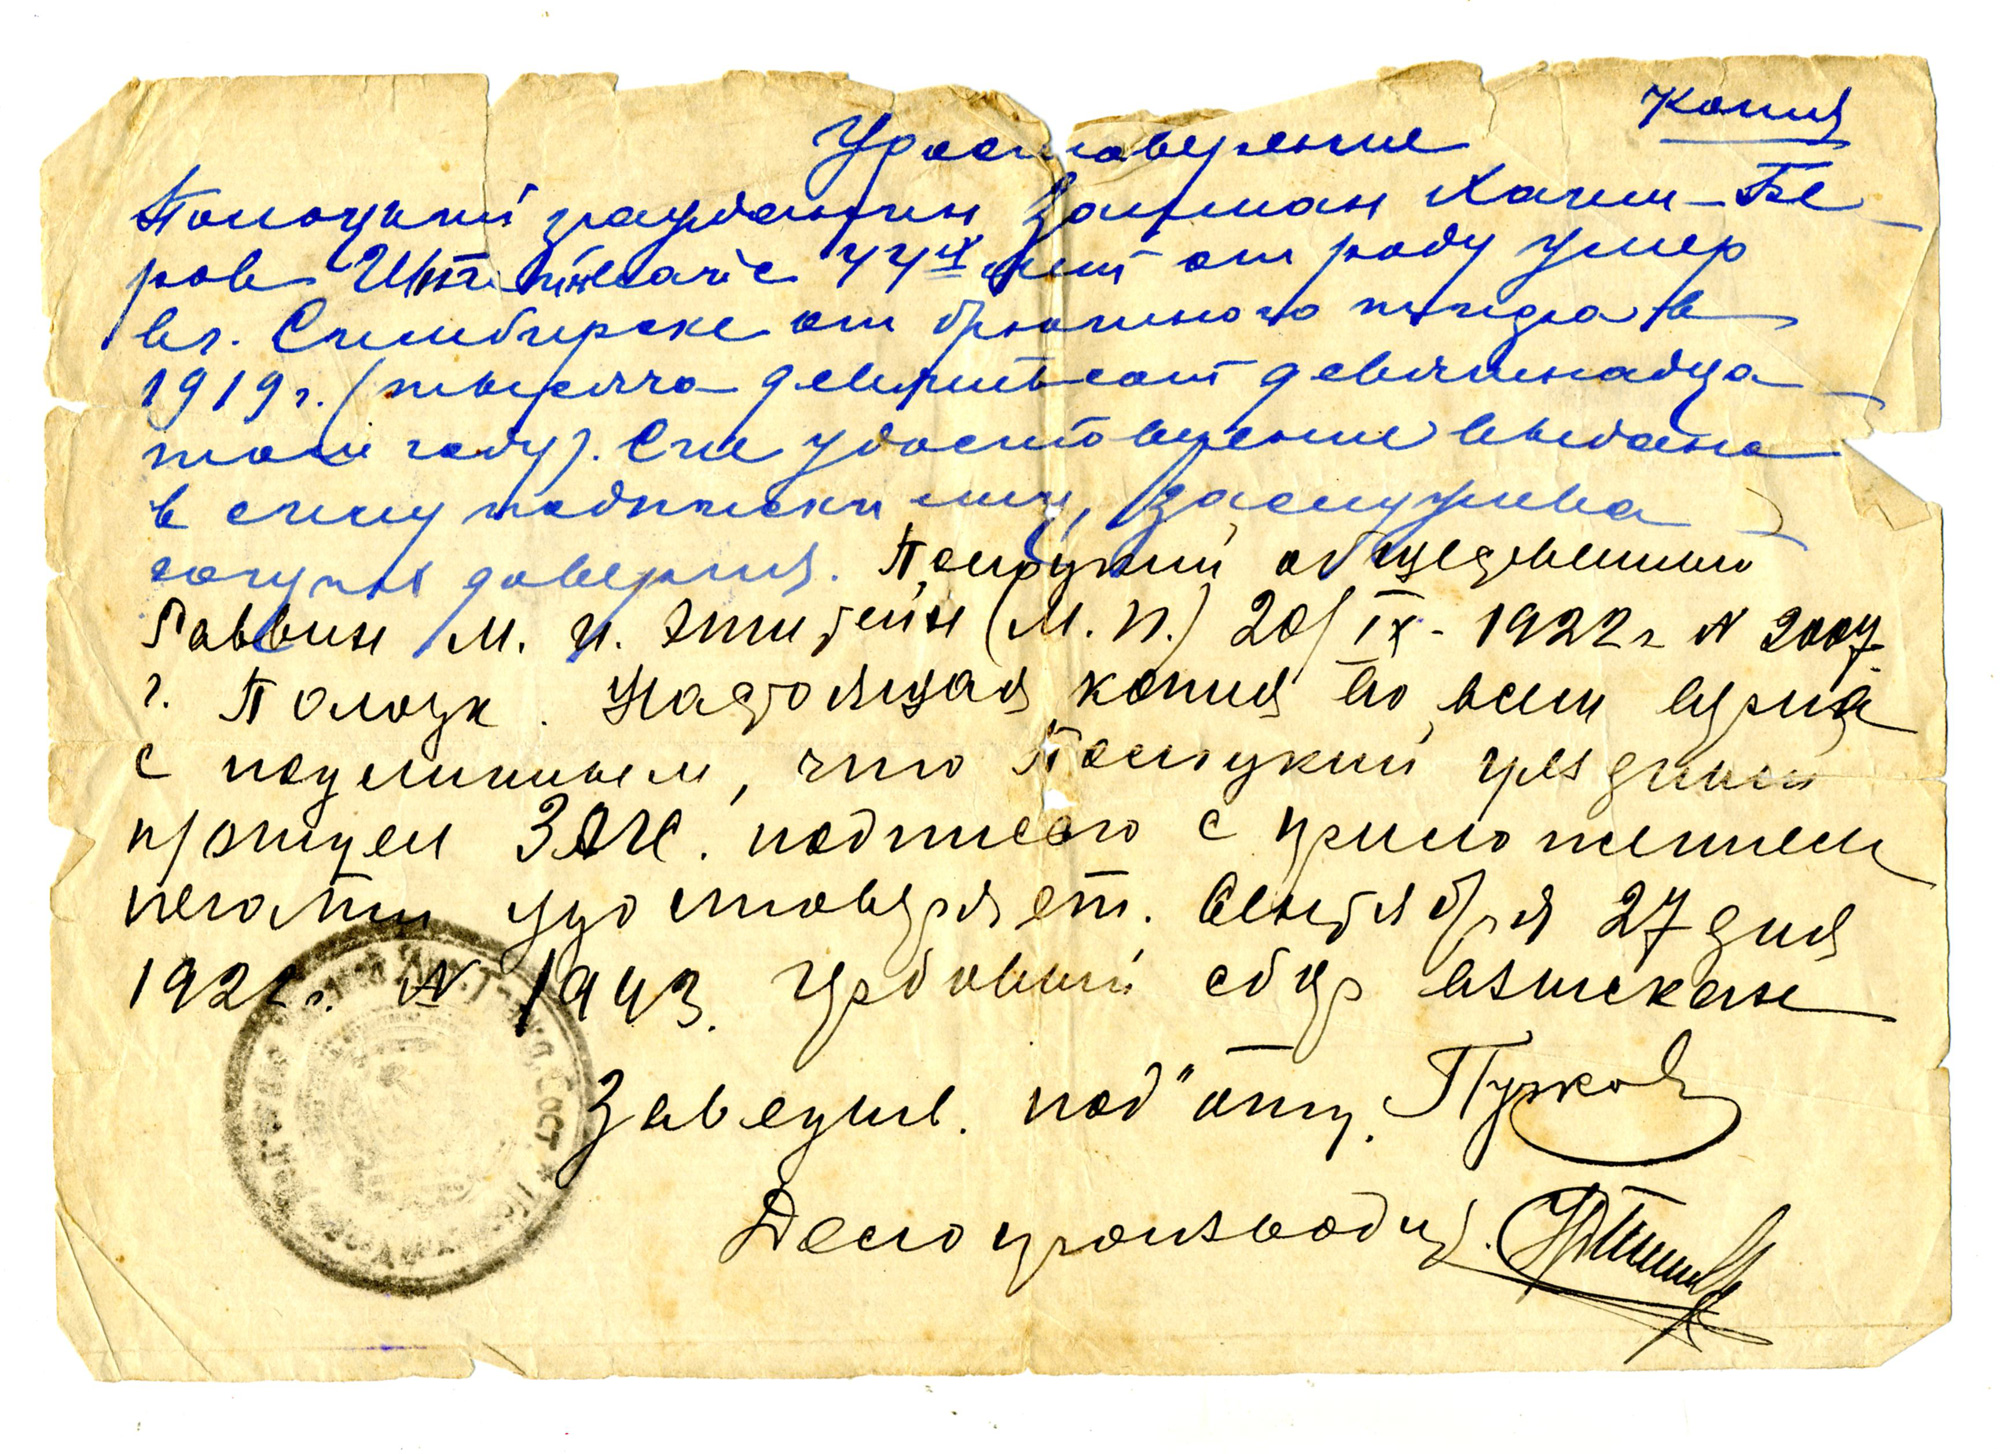 Копия
Удостоверение
Полоцкий гражданин Залман Хаим-Бе-
ров 44х лет от роду умер
в г. Симбирске от брюшного тифа в
1919 г. (тысяча девятьсот девятнадца-
том году). Сие удостоверение выдано
в силу подписки лиц, заслужива-
ющих доверия. Полоцкий общественный
Раввин М. И. (М. П.) 20/IX - 1922 г № 2007
г. Полоцк. Настоящая копия во всем верна
с подлинным, что Полоцкий уездный
п/отдел ЗАГС. подписью с приложением
печати удостоверяет. Сентября 27 дня
1922 г. № 1943. Гербовый сбор взыскан
Заведыв. под"отд. Пучков
Делопроизводит.